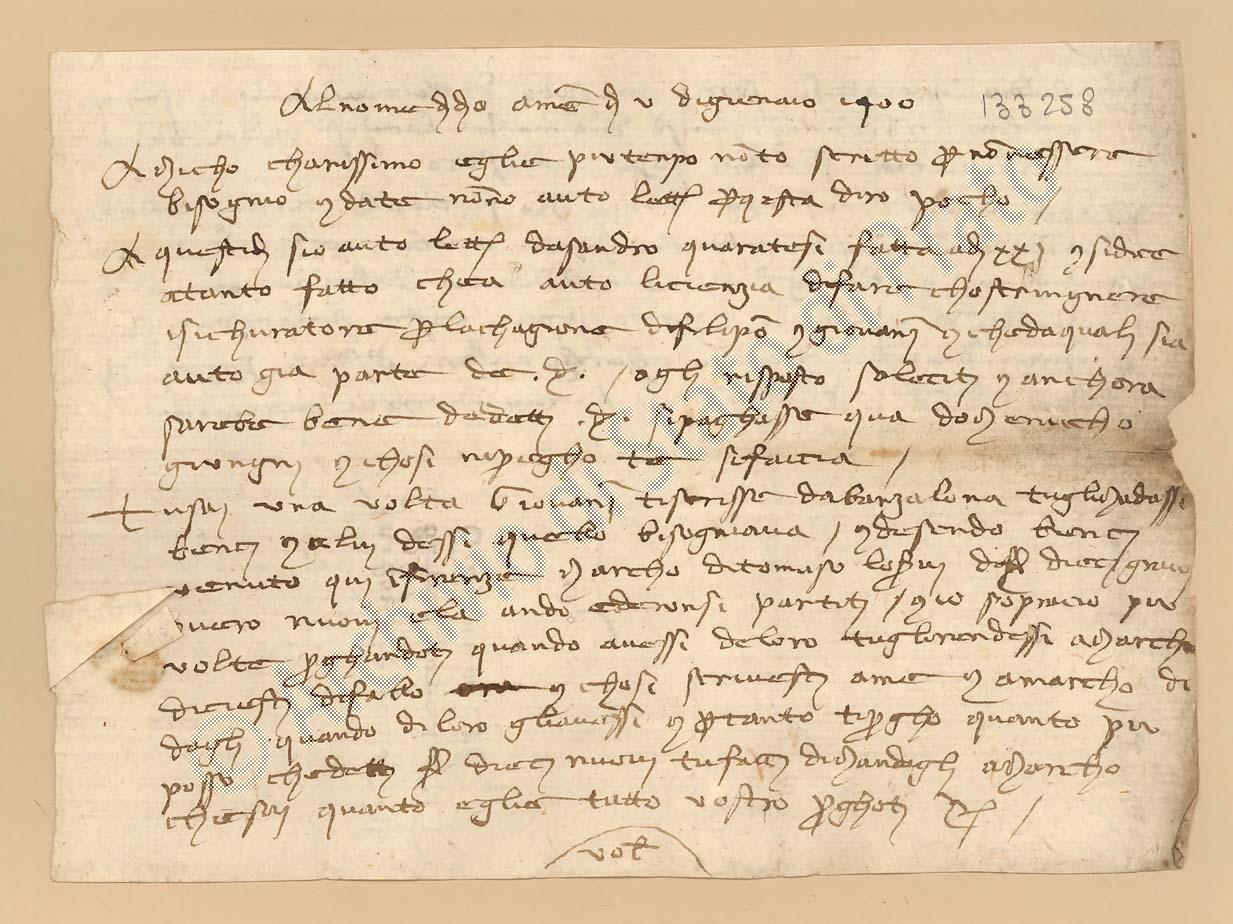 Al nome di dio ame di v di gienaio 1400 133258
Amicho charissimo eglie piu tenpo nonto scritto per nonn essere
bisogno e date nonno auto lett per questa diro pocho /
A questi di sio auto lett da sandro quaratesi fatta a di xxj e si dice
atanto fatto chea auto licienzia di fare chostringnere
isichuratore per la chagione di filipo e giovanni e che da quali sia
auto gia parte de d. / ogli risposto soleciti e anchora
sarebe bene de detti d. si paghasse qua domenicho
giungni e chosi ripriegho te si faccia /
Tu sai una volta Giovanni ti scrisse da barzalona tugli mandassi
benci e a lui dessi quello bisogniava / ed esendo benci
venuto qui i firenze marcho di tomaso dieci
nuovi ela ando e deronsi partiti / e io sopracio piu
volte preghandoti quando avessi de loro tuglirendessi a marcho
diciesti di fallo e chosi scrivesti ame e a marcho di
dagli quando di loro gliavessi e pertanto ti pregho quanto piu
posso che detti dieci nuovi tu facci di mandagli a marcho
che sai quanto eglie tutto vostro preghoti /
volt